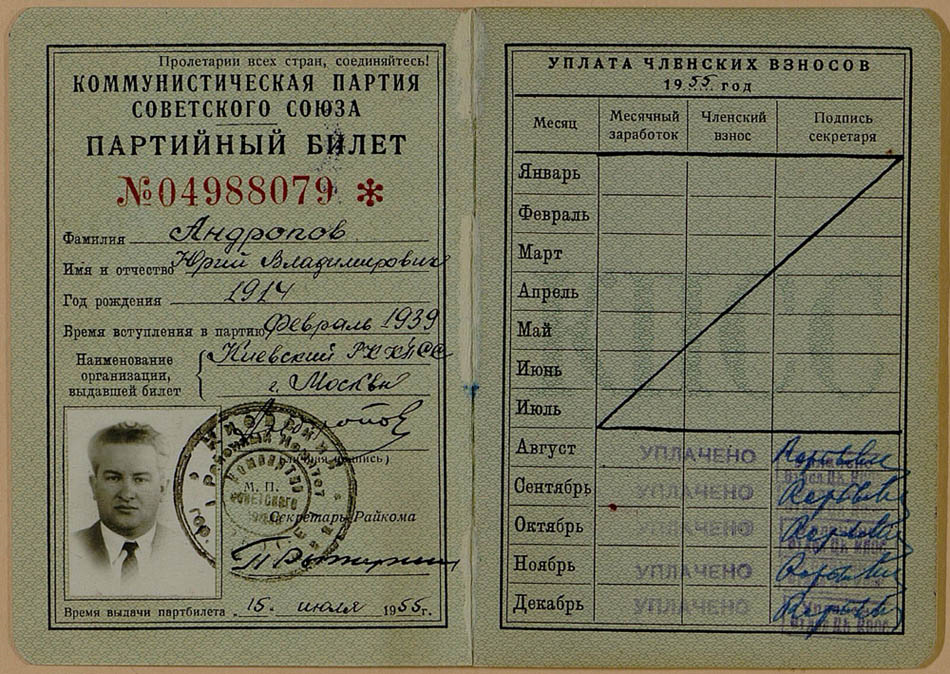 Пролетарии всех стран, соединяйтесь!
КОММУНИСТИЧЕСКАЯ ПАРТИЯ
СОВЕТСКОГО СОЮЗА
ПАРТИЙНЫЙ БИЛЕТ
№ 04988079 *
Фамилия Андропов
Имя и отчество Юрий Владимирович
Год рождения 1914
Время вступления в партию Февраль 1939
Наименование организации, выдавшей билет
Киевский РК КПСС
г. Москвы
(личная подпись)
М. П.
Секретарь Райкома
Время выдачи партбилета 15. июля 1955г.
УПЛАТА ЧЛЕНСКИХ ВЗНОСОВ
1955 год
Месяц Месячный заработок Членский взнос Подпись секретаря
Январь
Февраль
Март
Апрель
Май
Июнь
Июль
Август УПЛАЧЕНО
Сентябрь УПЛАЧЕНО
Октябрь УПЛАЧЕНО
Ноябрь УПЛАЧЕНО
Декабрь УПЛАЧЕНО